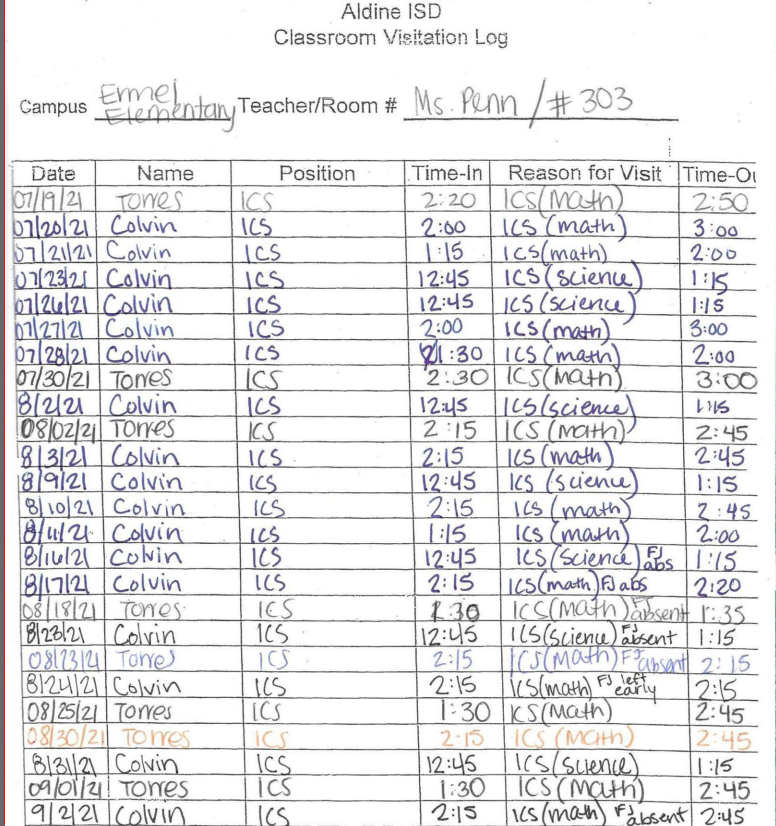 Aldine ISD
Classroom Visitation Log
Campus Ermel Elementary Teacher/Room # Ms. Penn / # 303
Date Name Position Time-In Reason for Visit Time-Ou
07/19/21 Torres ICS 2:20 ICS (Math) 2:50
07/20/21 Colvin ICS 2:00 ICS (math) 3:00
07/21/21 Colvin ICS 1:15 ICS (math) 2:00
07/23/21 Colvin ICS 12:45 ICS (science) 1:15
07/26/21 Colvin ICS 12:45 ICS (science) 1:15
07/27/21 Colvin ICS 2:00 ICS (math) 3:00
07/28/21 Colvin ICS 1:30 ICS (math) 2:00
07/30/21 Torres ICS 2:30 ICS (Math) 3:00
8/2/21 Colvin ICS 12:45 ICS (science) 1:15
08/02/21 Torres ICS 2:15 ICS (Math) 2:45
8/3/21 Colvin ICS 2:15 ICS (math) 2:45
8/9/21 Colvin ICS 12:45 ICS (science) 1:15
8/10/21 Colvin ICS 2:15 ICS (math) 2:45
8/11/21 Colvin ICS 1:15 ICS (math) 2:00
8/16/21 Colvin ICS 12:45 ICS (science) FJ abs 1:15
8/17/21 Colvin ICS 2:15 ICS (math) FJ abs 2:20
08/18/21 Torres ICS 1:30 ICS (Math) FJ absent 1:35
8/23/21 Colvin ICS 12:45 ICS (science) FJ absent 1:15
08/23/21 Torres ICS 2:15 ICS (Math) FJ absent 2:15
8/24/21 Colvin ICS 2:15 ICS (math) FJ left early 2:15
08/25/21 Torres ICS 1:30 ICS (Math) 2:45
08/30/21 Torres ICS 2:15 ICS (Math) 2:45
8/31/21 Colvin ICS 12:45 ICS (science) 1:15
09/01/21 Torres ICS 1:30 ICS (Math) 2:45
9/2/21 Colvin ICS 2:15 ICS (math) FJ absent 2:45